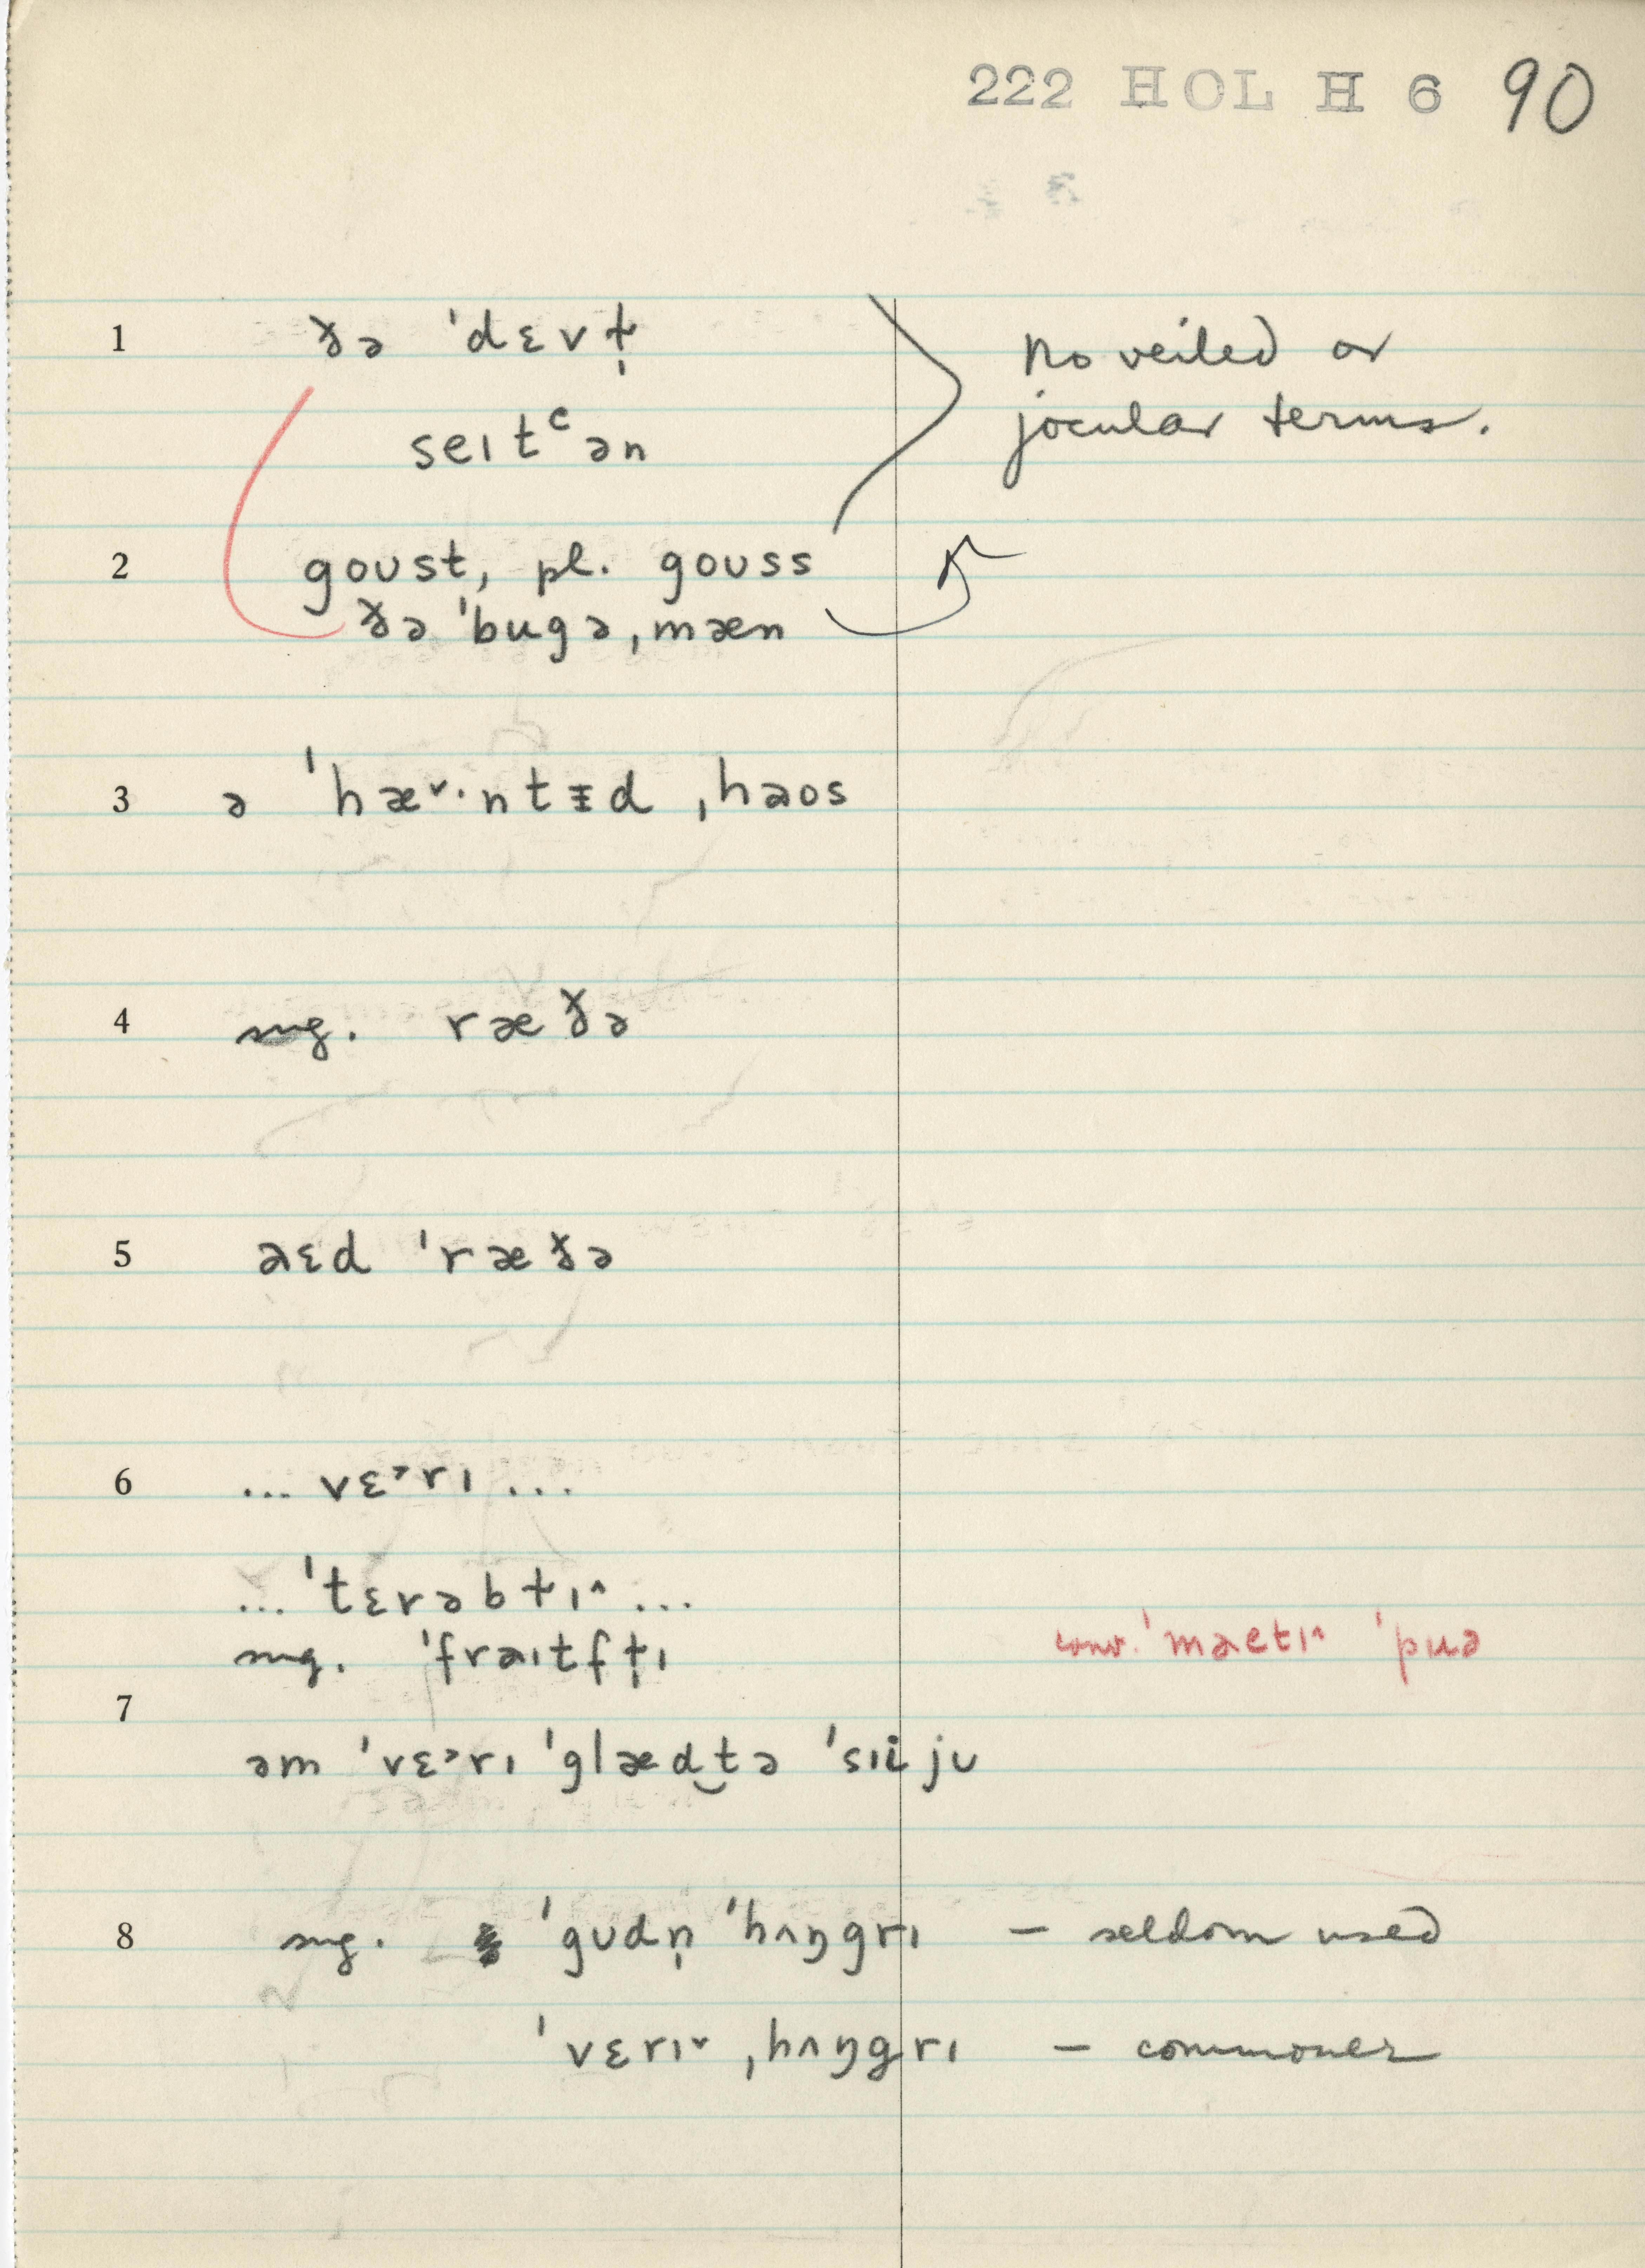 222 HOL H 6 90
1 ðə ˈdɛvɫ̩ No veiled or
seɪtʿən jocular terms.
2 goʊst, pl. goʊss
ðə ˈbugəˌmæn
3 ə ˈhæ˅·ntɨd ˌhaos
4 sug. ræðə
5 aɛd ˈræðə
6 ... vɛ˃rɪ ...
... ˈtɛrəbɫɪ˄ ...
sug. ˈfraɪtfɫ̩ɪ conv. ˈmaetɪ˄ ˈpuə
7
əm ˈvɛ˃rɪ ˈglæd‿tə ˈsɪiju
8 sug. ˈgʊdn̩ ˈhʌŋgrɪ – seldom used
ˈvɛrɪ˅ ˌhʌŋgrɪ – commoner